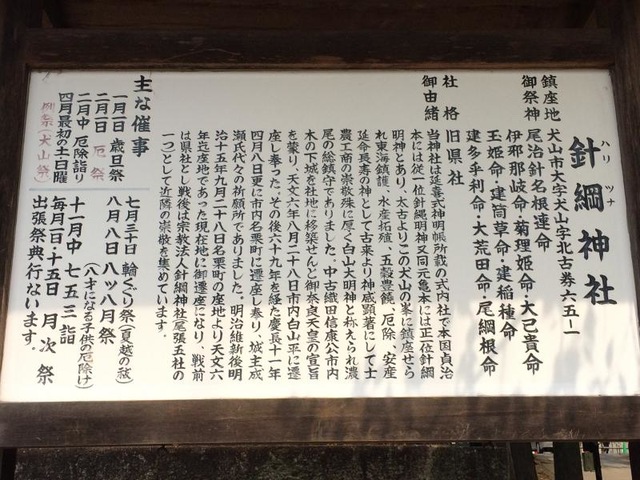 針綱神社
ハリ ツナ
鎮座地 犬山市大字犬山字北古券六五ー一
御祭神 尾治針名根連命
伊邪那岐命・菊理姫命・大己貴命
玉姫命・建筒草命・建稲種命
建多乎利命・大荒田命・尾綱根命
社格 旧県社
御由緒 当神社は延喜式神明帳所載の式内社で本国貞治
本には従一位針縄明神又同元亀本には正一位針綱
明神とあり、太古よりこの犬山の峯に鎮座せら
れ東海鎮護、水産拓殖、五穀豊饒、厄除、安産
延命長寿の神として古来より神威顕著にして士
農工商の崇敬殊に厚く白山大明神と称えられ濃
尾の総鎮守でありました。中古織田信康公市内
木の下城を社地に移築せんと御奈貞天皇の宣旨
を蒙り、天文六年八月二十八日市内白山平に遷
座し奉った。その後六十九年を経た慶長十一年
四月八日更に市内名栗町に遷座し奉り、城主成
瀬氏代々の祈願所でありました。明治維新後明
治十五年九月二十八日名栗町の座地より天文六
年迄座地であった現在地に御遷座になり、戦前
は県社とし戦後は宗教法人針綱神社(尾張五社の
一つ)として近隣の崇敬を集めています。
主な催事
一月一日 歳旦祭
二月一日 厄祭
二月中 厄除詣り
四月最初の土・日曜
例祭(犬山祭)
七月三十日 輪くぐり祭(夏越の祓)
八月八日 八ッ八月祭
(八才になる子供の厄除け)
十一月中 七五三詣
毎月一日・十五日 月次祭
出張祭典行ないます。